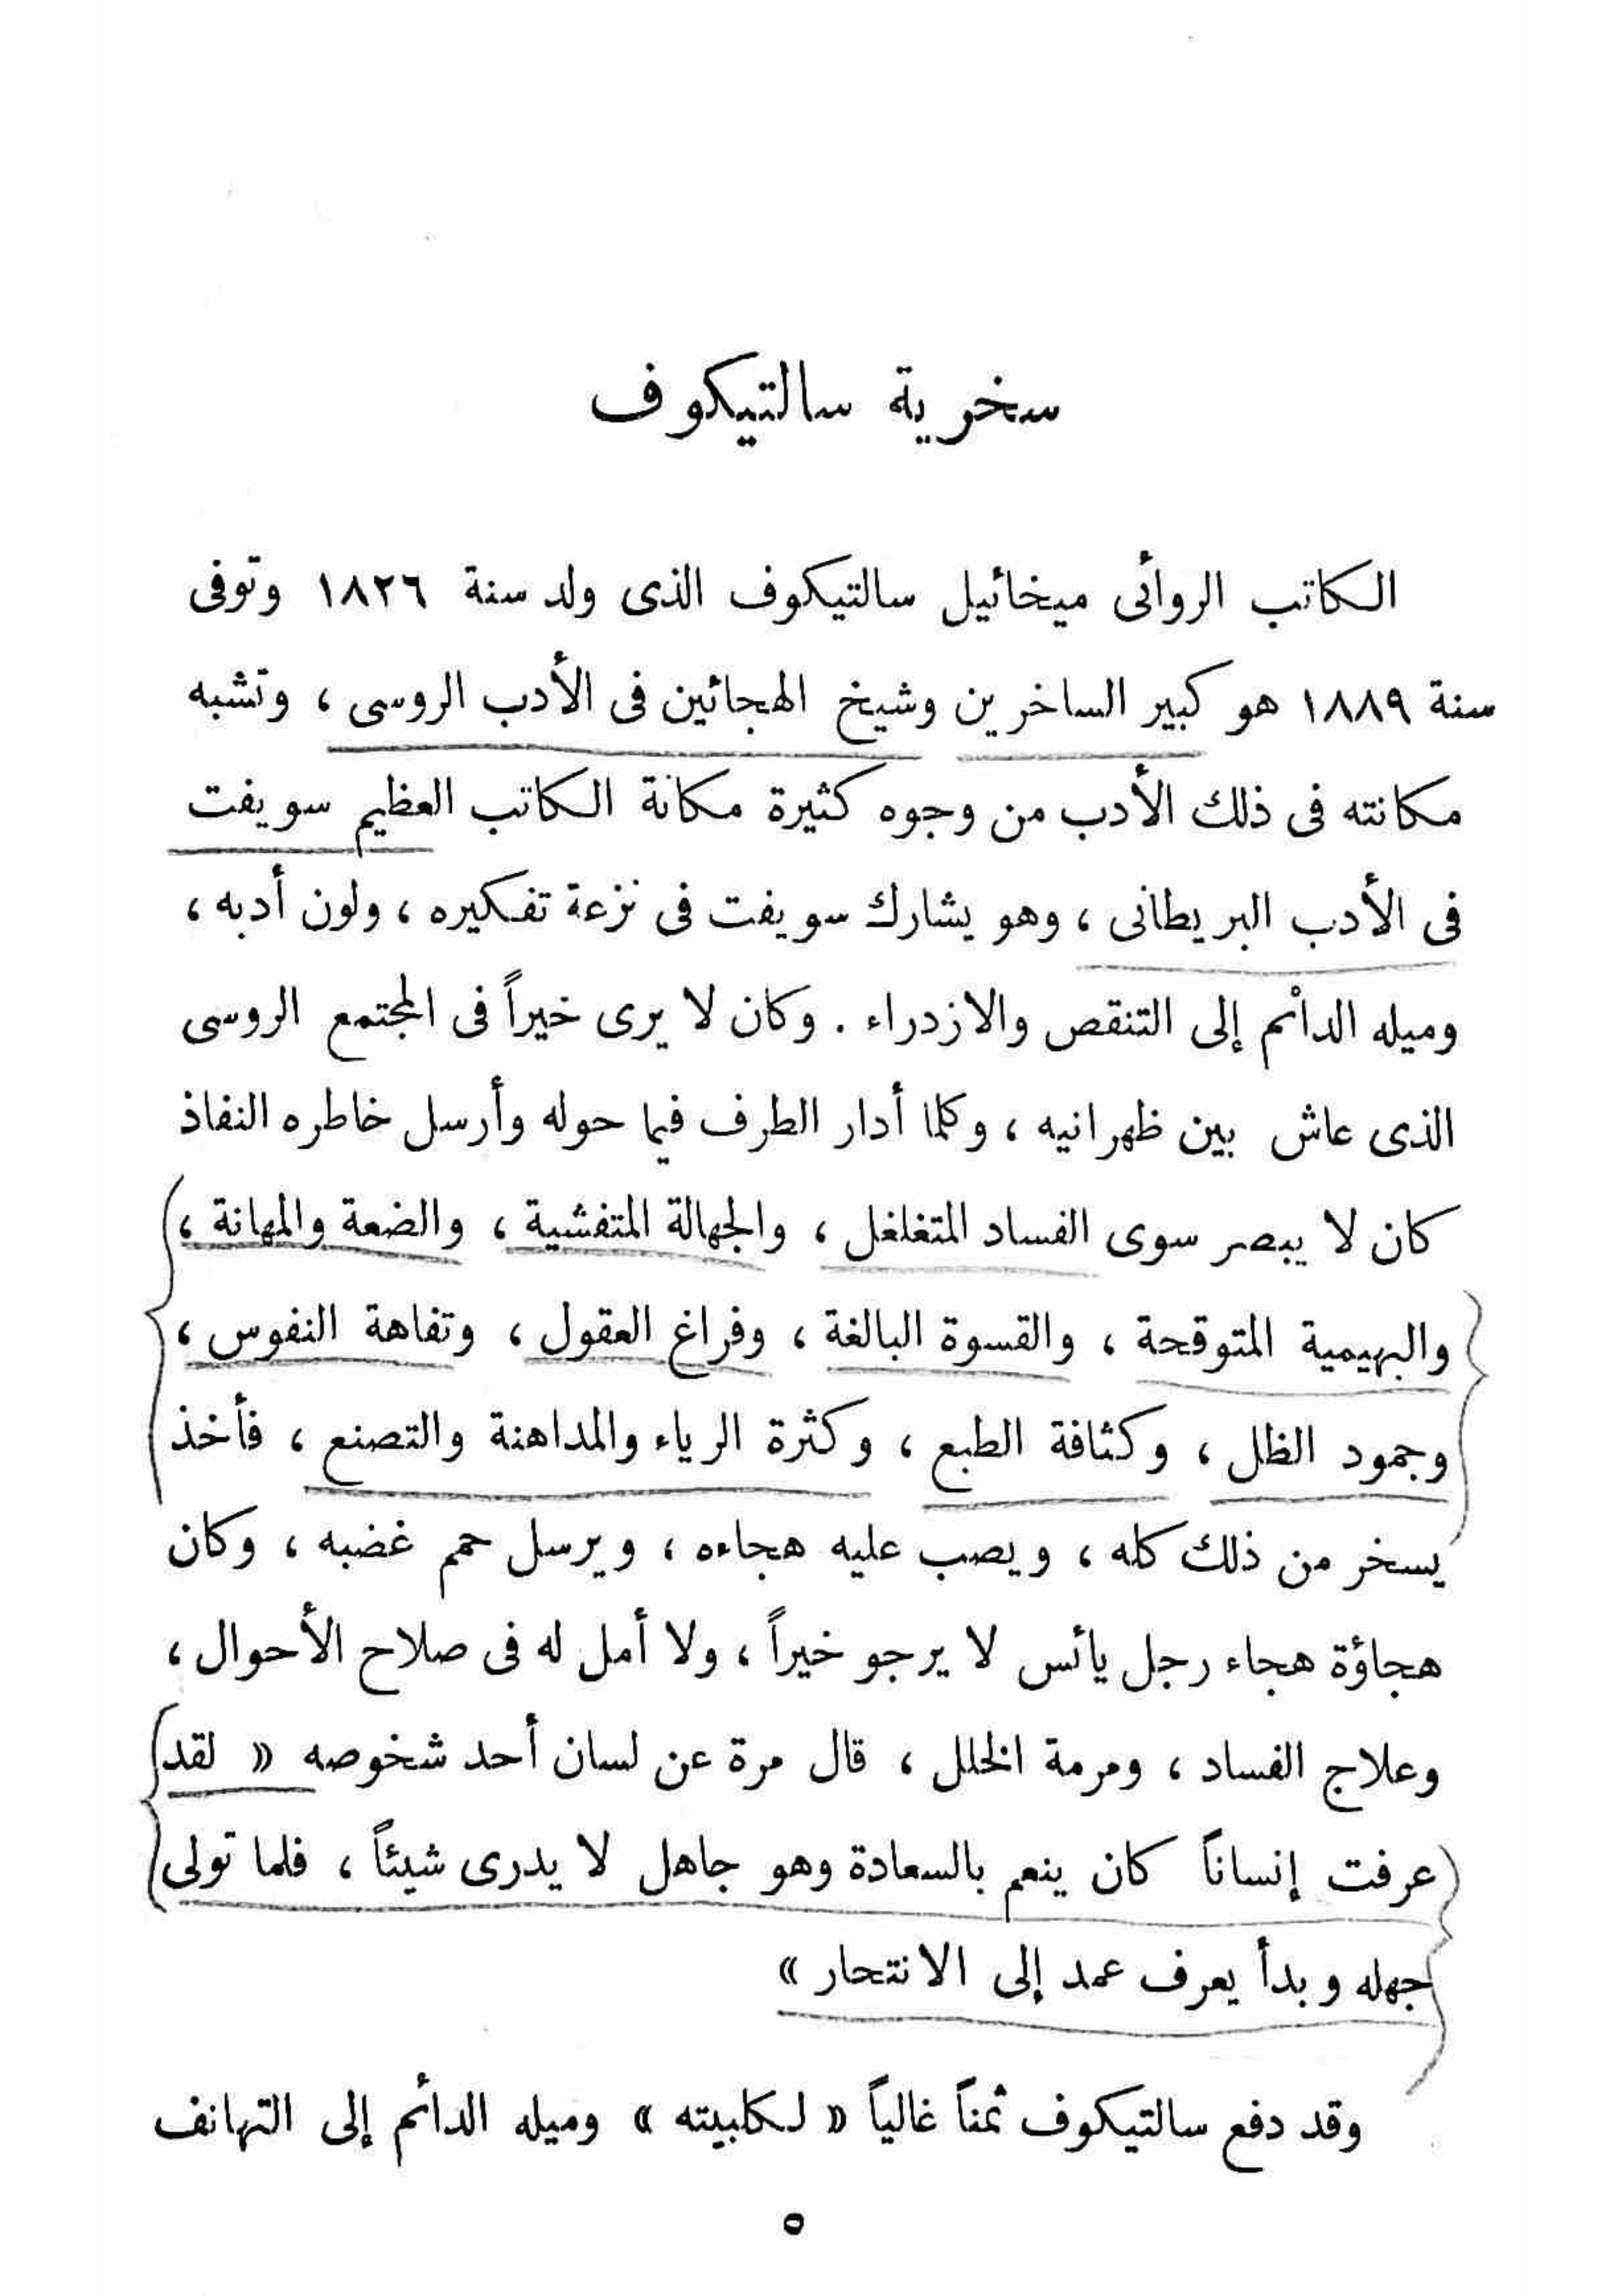 سخرية سالتيكوف
الكاتب الروائى ميخائيل سالتيكوف الذى ولد سنة ١٨٢٦ وتوفى
سنة ١٨٨٩ هو كبير الساخرين وشيخ الهجائين فى الأدب الروسى ، وتشبه
مكانته فى ذلك الأدب من وجوه كثيرة مكانة الكاتب العظيم سويفت
فى الأدب البريطانى ، وهو يشارك سويفت فى نزعة تفكيره ، ولون أدبه ،
وميله الدائم إلى التنقص والازدراء . وكان لا يرى خيراً فى المجتمع الروسى
الذى عاش بين ظهرانيه ، وكلما أدار الطرف فيما حوله وأرسل خاطره النفاذ
كان لا يبصر سوى الفساد المتغلغل ، والجهالة المتفشية ، والضعة والمهانة ،
والبهيمية المتوقحة ، والقسوة البالغة ، وفراغ العقول ، وتفاهة النفوس ،
وجمود الظل ، وكثافة الطبع ، وكثرة الرياء والمداهنة والتصنع ، فأخذ
يسخر من ذلك كله ، ويصب عليه هجاءه ، ويرسل حمم غضبه ، وكان
هجاؤة هجاء رجل يائس لا يرجو خيراً ، ولا أمل له فى صلاح الأحوال ،
وعلاج الفساد ، ومرمة الخلل ، قال مرة عن لسان أحد شخوصه « لقد
عرفت إنساناً كان ينعم بالسعادة وهو جاهل لا يدرى شيئاً ، فلما تولى
جهله وبدأ يعرف عمد إلى الانتحار »
وقد دفع سالتيكوف ثمناً غالياً « لكلبيته » وميله الدائم إلى التهانف
٥